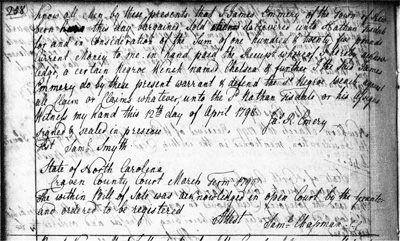 248
Know all Men by these presents that I James Emmery of the Town of New
bern have this day bargained Sold & delivered unto Nathan Tisdale
for and in Consideration of the Sum of One hundred & twenty five pounds
Current Money to me in hand paid the Receipt whereof I do hereby
ledge a certain Negroe Wench named Chelsea & further I the Sd James
Emmery do by these present warrant & defend the Sd Negroe Wench against
all Claim or Claims whatever, unto the Sd Nathan Tisdale or his Assigns
Witness my hand this 12th day of April 1795
Jas R. Emery
Signed & Sealed in presence
Test Saml Smyth
State of North Carolina
Craven County Court March Term 1795
The within Bill of Sale was acknowledged in open Court by the
and ordered to be registered
Attest
Saml Chapman